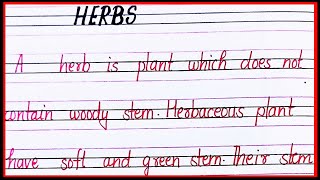 HERBS
A herb is plant which does not
contain woody stem. Herbaceous plant
have soft and green stem. Their stem